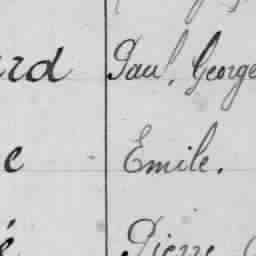 rd Paul, George
e Emile.
é Pierre